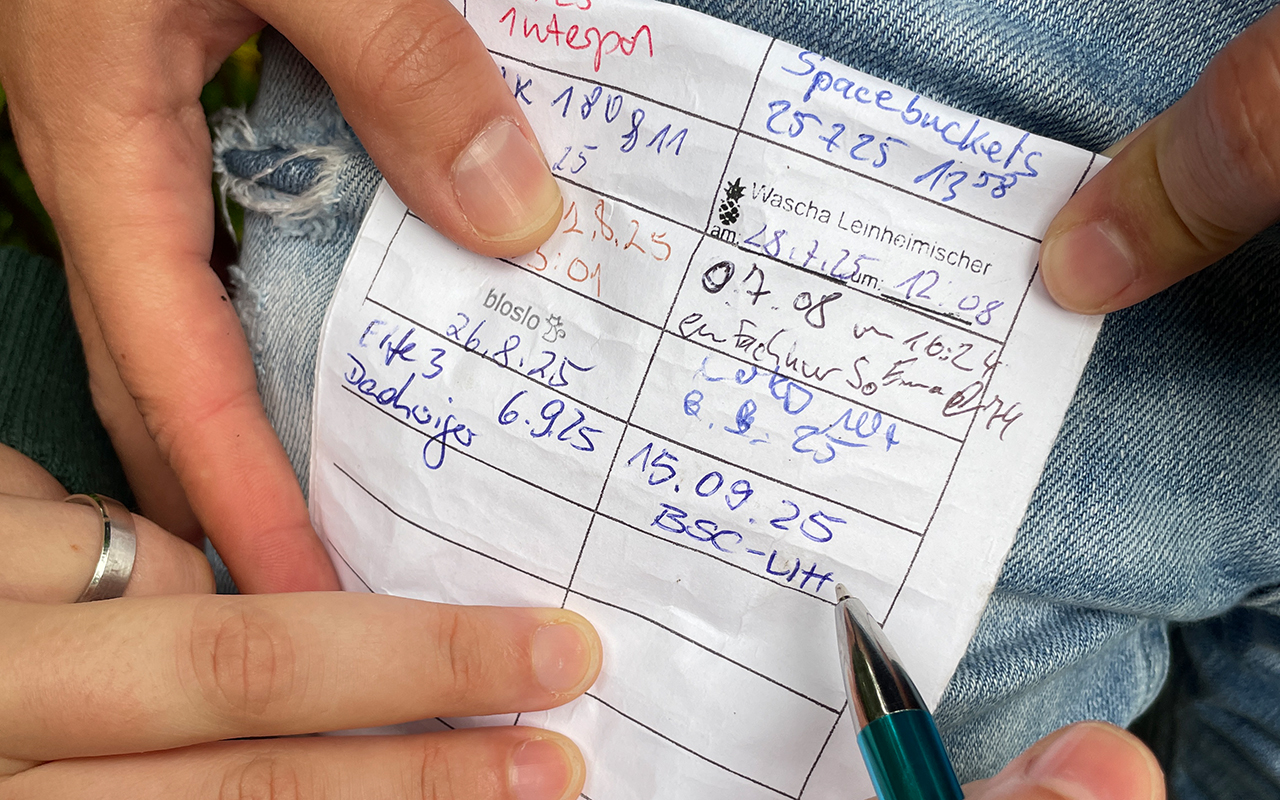 Interpol
180 811
25
12.8.25
:01
bloslo
26.8.25
Elfe3
Dachzige 6.9.25
Spacebuckets
25 7 25 13 58
Wascha Leinheimischer
am: 28.7.25 um: 12:08
07.08 um 16:24
einfach nur So
8. 8. 25
15.09.25
BSC-LItt